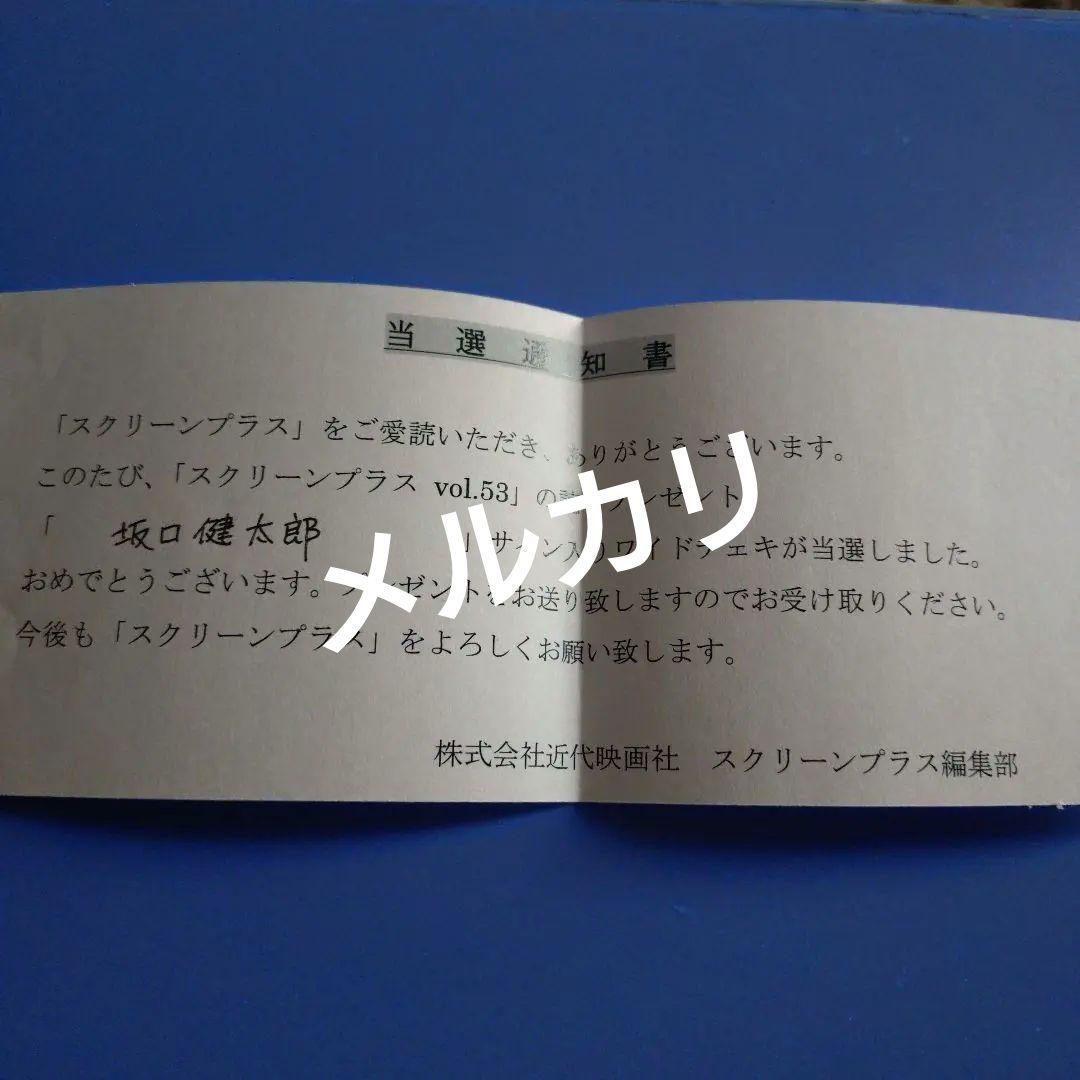 当選通知書
「スクリーンプラス」をご愛読いただき、ありがとうございます。
このたび、「スクリーンプラス vol.53」の誌 プレゼント
「 坂口健太郎 」サイン入りワイドチェキが当選しました。
おめでとうございます。プレゼントをお送り致しますのでお受け取りください。
今後も「スクリーンプラス」をよろしくお願い致します。
株式会社近代映画社 スクリーンプラス編集部
メルカリ